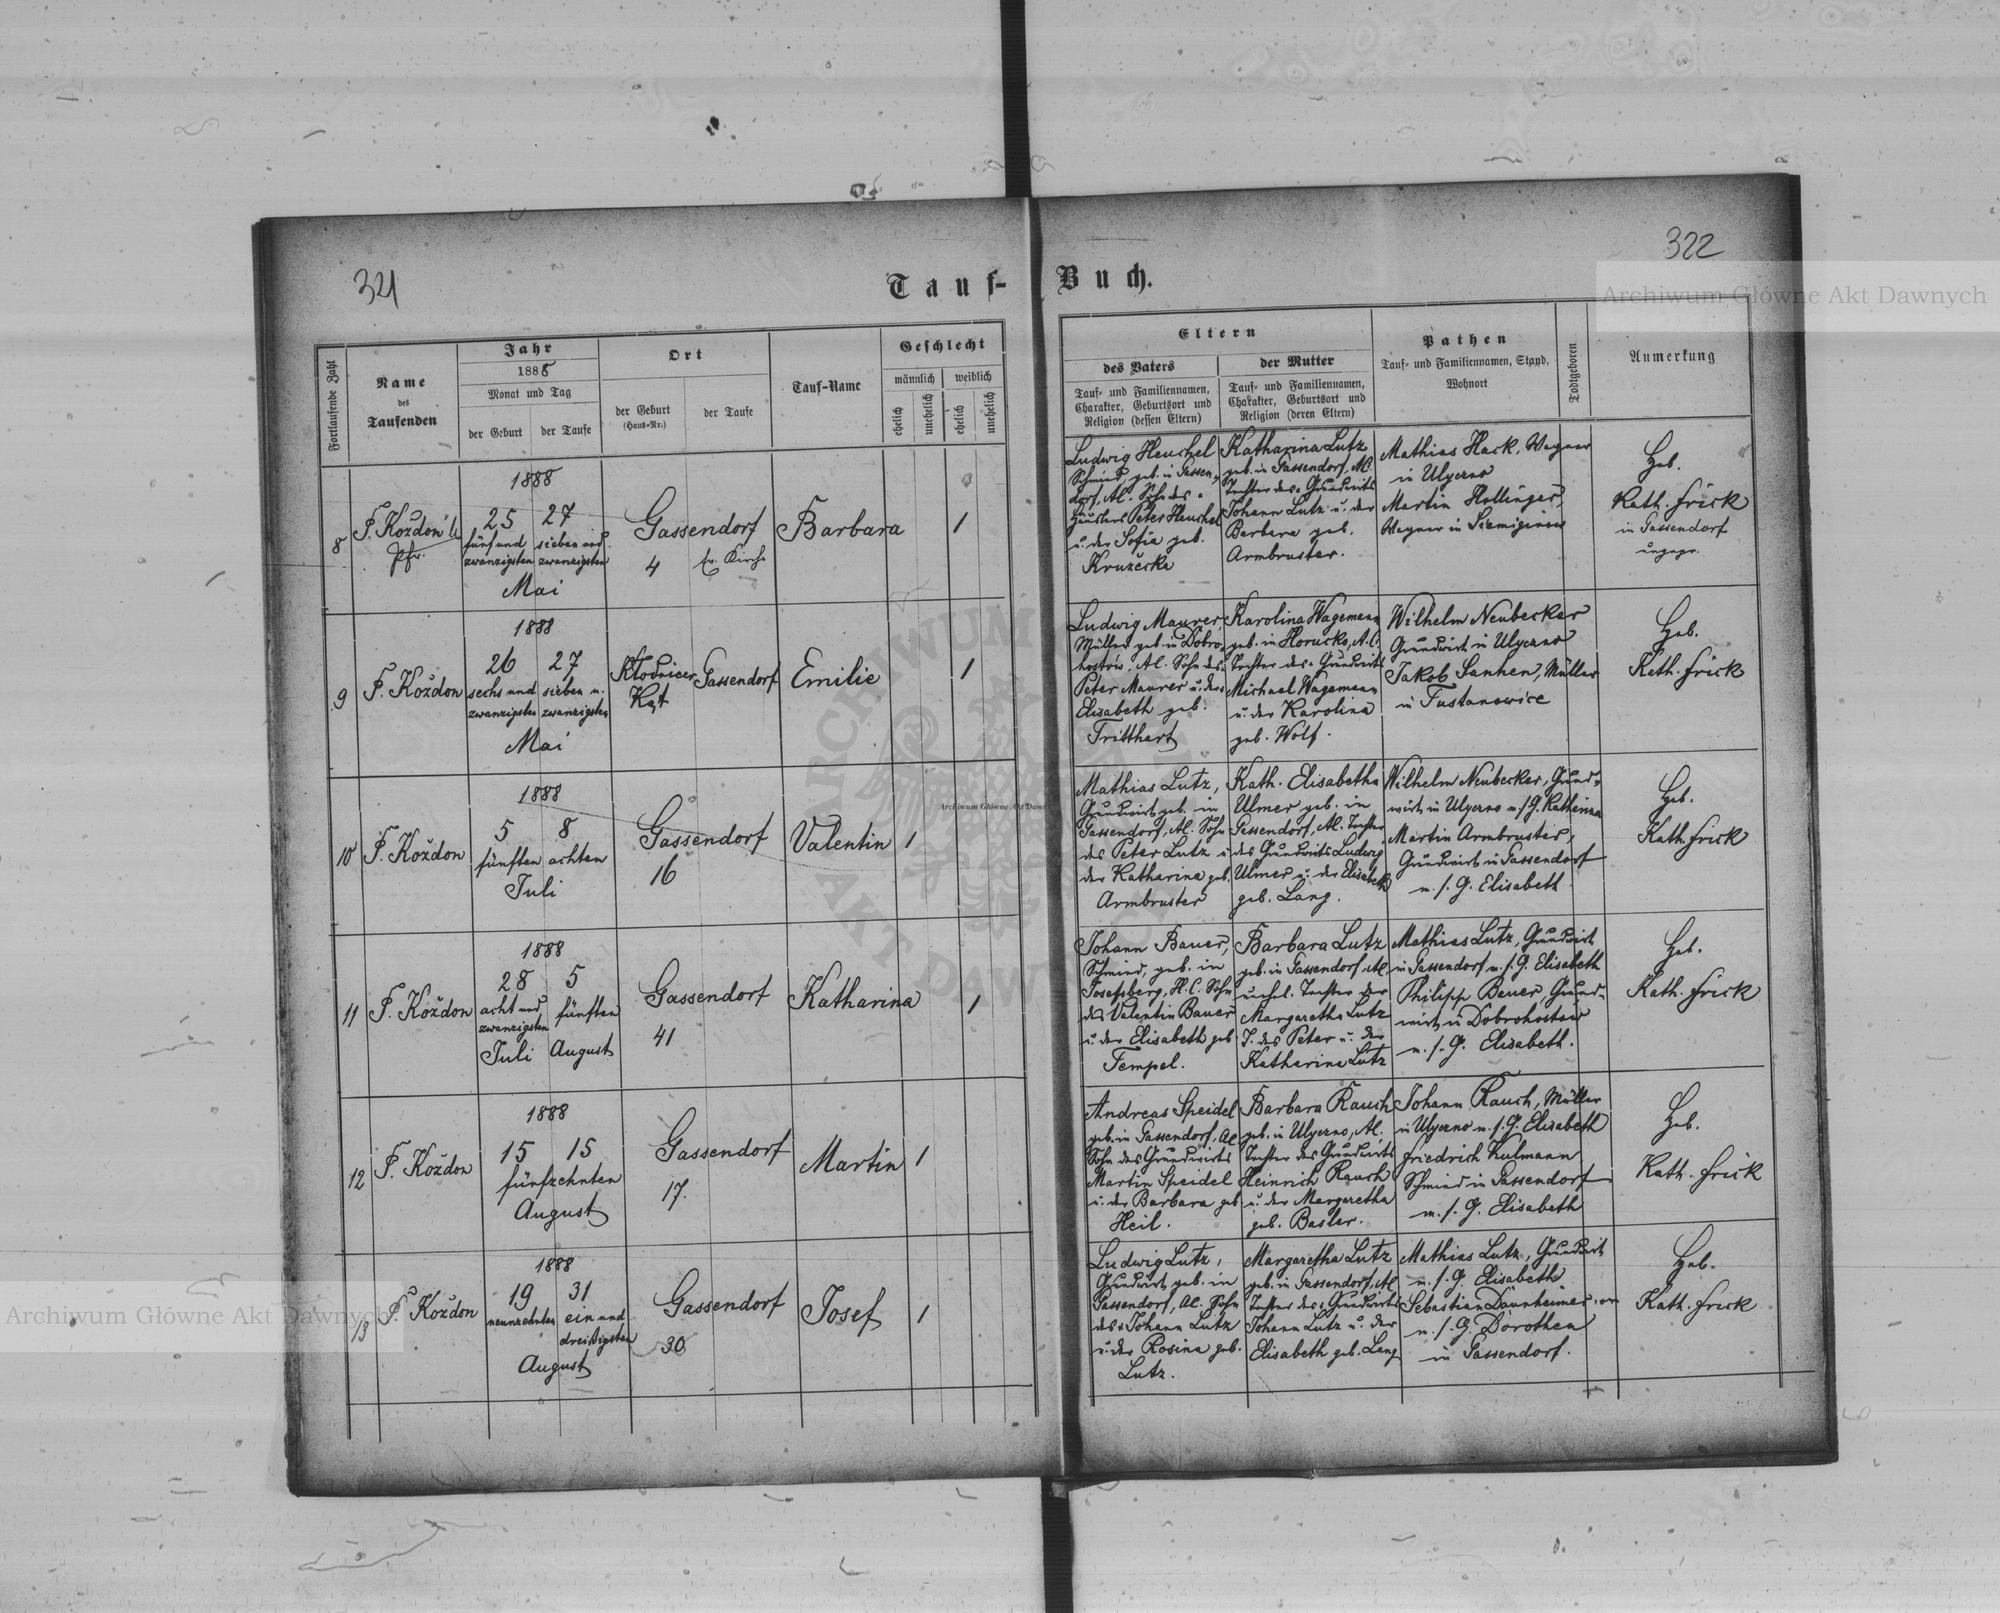 321
322
Tauf-
Buch.
Fortlaufende Zahl
Name
des
Taufenden
Jahr
1888
Monat und Tag
der Geburt
der Taufe
Ort
der Geburt
(Haus-Nr.)
der Taufe
Tauf-Name
Geschlecht
männlich
weiblich
ehelich
unehelich
ehelich
unehelich
Eltern
des Vaters
Tauf- und Familiennamen,
Charakter, Geburtsort und
Religion (dessen Eltern)
der Mutter
Tauf- und Familiennamen,
Charakter, Geburtsort und
Religion (deren Eltern)
Pathen
Tauf- und Familiennamen, Stand,
Wohnort
Todtgeboren
Anmerkung
8
F. Koždon
Pfr.
1888
25 27
fünf und sieben und
zwanzigsten zwanzigsten
Mai
Gassendorf
4 ev. Kirche
Barbara
1
Ludwig Heuchel
Schmied, geb. in Gassen-
dorf, A.C. Sohn des
Häuslers Peter Heuchel
u. der Sofia geb.
Kružecka
Katharina Lutz
geb. in Gassendorf, A.C.
Tochter des Grundwirts
Johann Lutz u. der
Barbara geb.
Armbruster.
Mathias Hack, Wagner
in Ulyczno
Martin Hollinger,
Wagner in
Heb.
Kath. Frick
in Gassendorf
ungepr.
9
F. Koždon
1888
26 27
sechs und sieben u.
zwanzigsten zwanzigsten
Mai
Kłodnicer
Kąt
Gassendorf
Emilie
1
Ludwig Maurer,
Müller geb. in Dobro-
hostów, A.C. Sohn des
Peter Maurer u. der
Elisabeth geb.
Tritthart
Karolina Wagemann
geb. in Horucko, A.C.
Tochter des Grundwirts
Michael Wagemann
u. der Karolina
geb. Wolf.
Wilhelm Neubecker
Grundwirt in Ulyczno
Jakob Manhen, Müller
in Tustanowice
Heb.
Kath. Frick
10
F. Koždon
1888
5 8
fünften achten
Juli
Gassendorf
16
Valentin
1
Mathias Lutz,
Grundwirt geb. in
Gassendorf, A.C. Sohn
des Peter Lutz u.
der Katharina geb.
Armbruster
Kath. Elisabetha
Ulmer geb. in
Gassendorf, A.C. Tochter
des Grundwirts Ludwig
Ulmer u. der Elisabeth
geb. Lang.
Wilhelm Neubecker, Grund-
wirt in Ulyczno m. s. G. Katharina
Martin Armbruster,
Grundwirt in Gassendorf
m. s. G. Elisabeth
Heb.
Kath. Frick
11
F. Koždon
1888
28 5
acht und fünften
zwanzigsten
Juli August
Gassendorf
41
Katharina
1
Johann Bauer,
Schmied, geb. in
Josefsberg, H.C. Sohn
des Valentin Bauer
u. der Elisabeth geb.
Tempel.
Barbara Lutz
geb. in Gassendorf, A.C.
unehel. Tochter der
Margaretha Lutz
T. des Peter u. der
Katharina Lutz
Mathias Lutz, Grundwirt
in Gassendorf m. s. G. Elisabeth
Philipp Bauer, Grund-
wirt in Dobrohostow
m. s. G. Elisabeth.
Heb.
Kath. Frick
12
F. Koždon
1888
15 15
fünfzehnten
August
Gassendorf
17.
Martin
1
Andreas Speidel
geb. in Gassendorf, A.C.
Sohn des Grundwirts
Martin Speidel
u. der Barbara geb.
Heil.
Barbara Rauch
geb. in Ulyczno, A.C.
Tochter des Grundwirts
Heinrich Rauch
u. der Margaretha
geb. Basler.
Johann Rauch, Müller
in Ulyczno m. s. G. Elisabeth
Friedrich Kulmann
Schmied in Gassendorf
m. s. G. Elisabeth
Heb.
Kath. Frick
13
F. Koždon
1888
19 31
neunzehnten ein und
dreißigsten
August
Gassendorf
30
Josef
1
Ludwig Lutz,
Grundwirt geb. in
Gassendorf, A.C. Sohn
des Johann Lutz
u. der Rosina geb.
Lutz.
Margaretha Lutz
geb. in Gassendorf, A.C.
Tochter des Grundwirts
Johann Lutz u. der
Elisabeth geb. Lang
Mathias Lutz, Grundwirt
m. s. G. Elisabeth
Sebastian Dannheimer
m. s. G. Dorothea
in Gassendorf.
Heb.
Kath. Frick
Archiwum Główne Akt Dawnych
Archiwum Główne Akt Dawnych